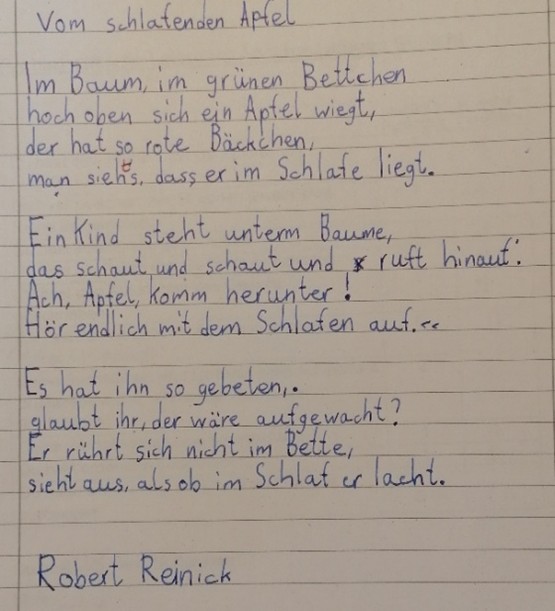 Vom schlafenden Apfel
Im Baum, im grünen Bettchen
hoch oben sich ein Apfel wiegt,
der hat so rote Bäckchen,
man sieht's, dass er im Schlafe liegt.
Ein Kind steht unterm Baume,
das schaut und schaut und ruft hinauf:
Ach, Apfel, komm herunter!
Hör endlich mit dem Schlafen auf."
Es hat ihn so gebeten,.
glaubt ihr, der wäre aufgewacht?
Er rührt sich nicht im Bette,
sieht aus, als ob im Schlaf er lacht.
Robert Reinick